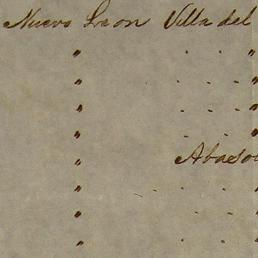 Nuevo Leon Villa del
" . . "
" . . "
" . . "
" . . "
" Abaso
" . . "
" . . "
" . "